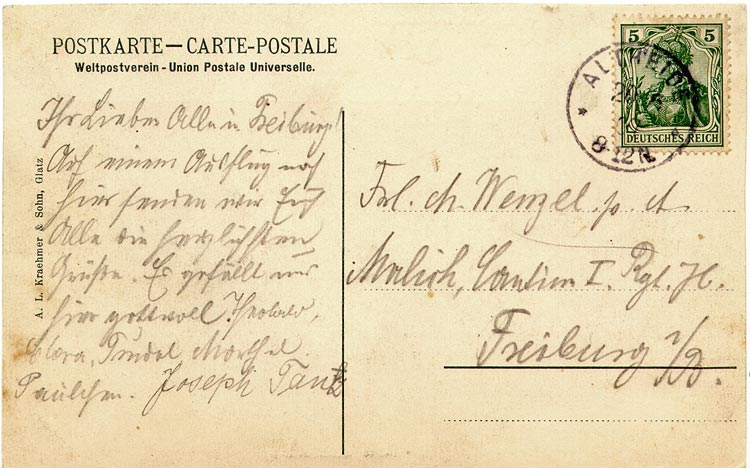 POSTKARTE — CARTE-POSTALE
Weltpostverein - Union Postale Universelle.
5 5
DEUTSCHES REICH
8-12N.
A. L. Kraehmer & Sohn, Glatz
Ihr Lieben Alle in Freiburg!
Auf einem Ausflug nach
hier senden wir Euch
Alle die herzlichsten
Grüße. Es gefällt uns
hier gottvoll. Theobald,
Clara, Trudel, Marthel
Paulchen. Joseph
Frl. Wenzel p. A.
Malich, Cantine I. Rgt.
Freiburg i/B.